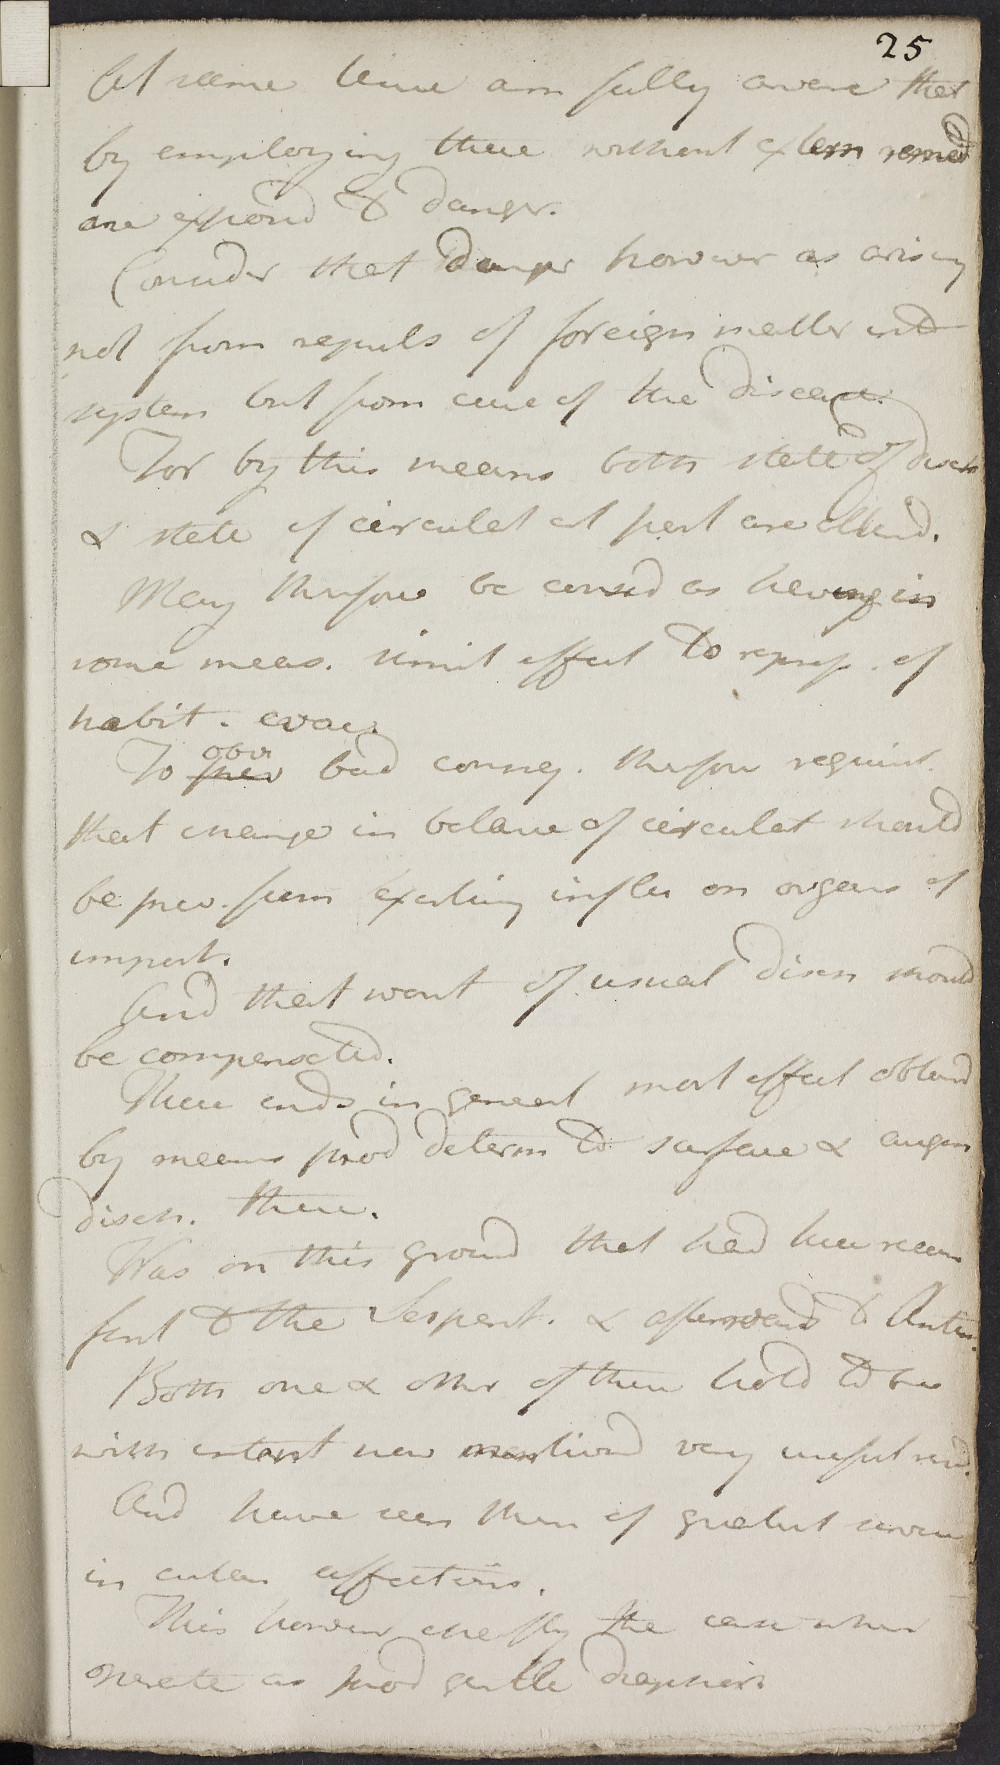 25
At same time am fully aware that
by employing these without extern remed
are expos'd to danger.
Consider that danger however as arising
not from repuls of foreign matter into
system but from cure of the disease.
For by this means both state of disch
& state of circulat at part are alterd.
May therfore be consid as having in
some meas. simil effect to repress. of
habit. evac.
To prev obv bad conseq. therfore requisit.
that change in balance of circulat should
be prev. from exerting influ on organs of
import.
And that want of usual disch should
be compensated.
These ends in general most effect obtaind
by means prod determ to surface & augm
disch. there.
Was on this ground that had here recours
first to the Serpent. & afterwards to Antim.
Both one & other of these hold to be
with intent now mentiond very useful med.
And have seen them of greatest service
in cutan affections.
This however chiefly the case when
operate as prod gentle diaphor.